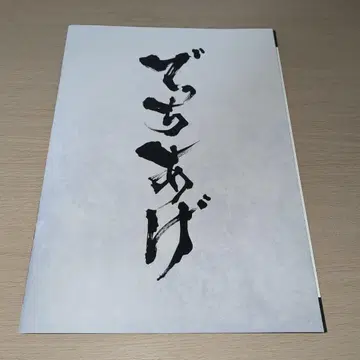 でっちあげ